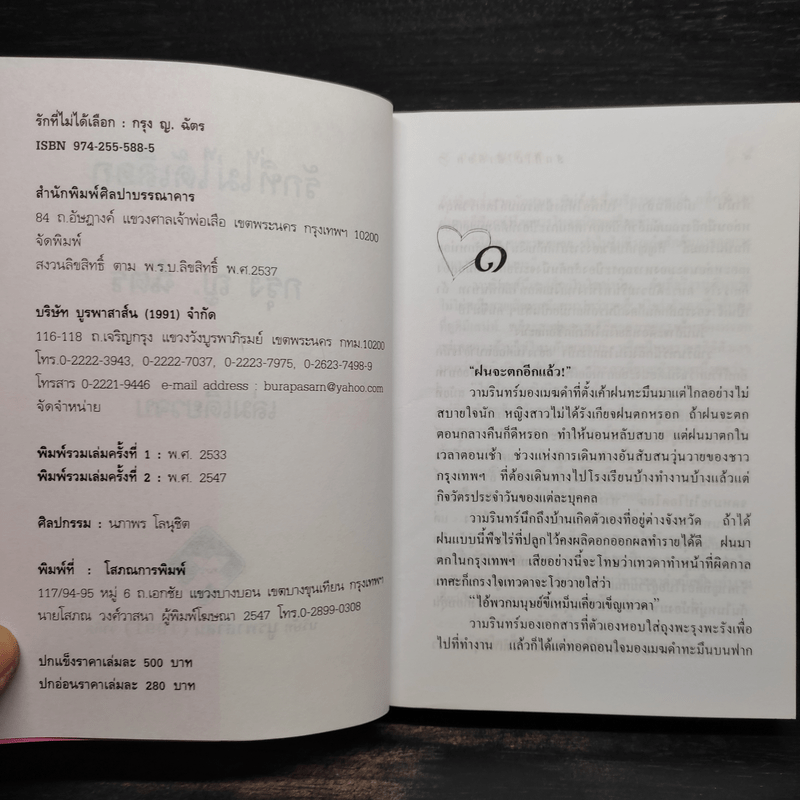 รักที่ไม่ได้เลือก : กรุง ญ. ฉัตร
ISBN 974-255-588-5
สำนักพิมพ์ศิลปาบรรณาคาร
84 ถ.อัษฎางค์ แขวงศาลเจ้าพ่อเสือ เขตพระนคร กรุงเทพฯ 10200
จัดพิมพ์
สงวนลิขสิทธิ์ ตาม พ.ร.บ.ลิขสิทธิ์ พ.ศ.2537
บริษัท บูรพาสาส์น (1991) จำกัด
116-118 ถ.เจริญกรุง แขวงวังบูรพาภิรมย์ เขตพระนคร กทม.10200
โทร.0-2222-3943, 0-2222-7037, 0-2223-7975, 0-2623-7498-9
โทรสาร 0-2221-9446 e-mail address : burapasarn@yahoo.com
จัดจำหน่าย
พิมพ์รวมเล่มครั้งที่ 1 : พ.ศ. 2533
พิมพ์รวมเล่มครั้งที่ 2 : พ.ศ. 2547
ศิลปกรรม : นภาพร โลนุชิต
พิมพ์ที่ : โสภณการพิมพ์
117/94-95 หมู่ 6 ถ.เอกชัย แขวงบางบอน เขตบางขุนเทียน กรุงเทพฯ
นายโสภณ วงศ์วาสนา ผู้พิมพ์โฆษณา 2547 โทร.0-2899-0308
ปกแข็งราคาเล่มละ 500 บาท
ปกอ่อนราคาเล่มละ 280 บาท
๑
"ฝนจะตกอีกแล้ว!"
วามรินทร์มองเมฆดำที่ตั้งเค้าฝนทะมึนมาแต่ไกลอย่างไม่
สบายใจนัก หญิงสาวไม่ได้รังเกียจฝนตกหรอก ถ้าฝนจะตก
ตอนกลางคืนก็ดีหรอก ทำให้นอนหลับสบาย แต่ฝนมาตกใน
เวลาตอนเช้า ช่วงแห่งการเดินทางอันสับสนวุ่นวายของชาว
กรุงเทพฯ ที่ต้องเดินทางไปโรงเรียนบ้างทำงานบ้างแล้วแต่
กิจวัตรประจำวันของแต่ละบุคคล
วามรินทร์นึกถึงบ้านเกิดตัวเองที่อยู่ต่างจังหวัด ถ้าได้
ฝนแบบนี้พืชไร่ที่ปลูกไว้คงผลิดอกออกผลทำรายได้ดี ฝนมา
ตกในกรุงเทพฯ เสียอย่างนี้จะโทษว่าเทวดาทำหน้าที่ผิดกาล
เทศะก็เกรงใจเทวดาจะโวยวายใส่ว่า
"ไอ้พวกมนุษย์ขี้เหม็นเคี่ยวเข็ญเทวดา"
วามรินทร์มองเอกสารที่ตัวเองหอบใส่ถุงพะรุงพะรังเพื่อ
ไปที่ทำงาน แล้วก็ได้แต่ทอดถอนใจมองเมฆดำทะมึนบนฟาก